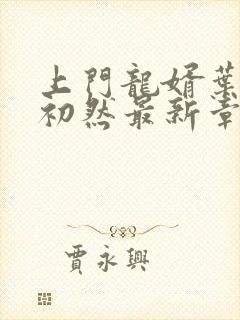 上門龍婿葉
初然最新章
賈永興